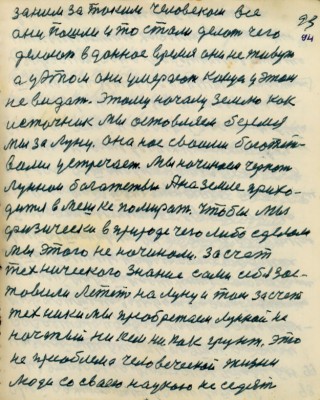 заним за таким человеком все
они пошли и то стали делат чего
делают в данное время они не живут
а у этом они умерают конца у этом
не видат. Этому началу землю как
источник мы оставляем беремся
мы за луну. она нас своими богатст-
вами устречает. Мы начинаем черпат
лунном богатствы А на земле прихо-
дится в мешке помират. Чтобы мы
физически в природе чего либо сделали
мы этого не начинаем. За счет
технического знание сами себя зос-
товили летет на луну и там за счет
техники мы приобретаем лунной не
начатый никем никак грунт. Это
не приоблема человеческой жизни
люди со своею наукою не седят
93
94